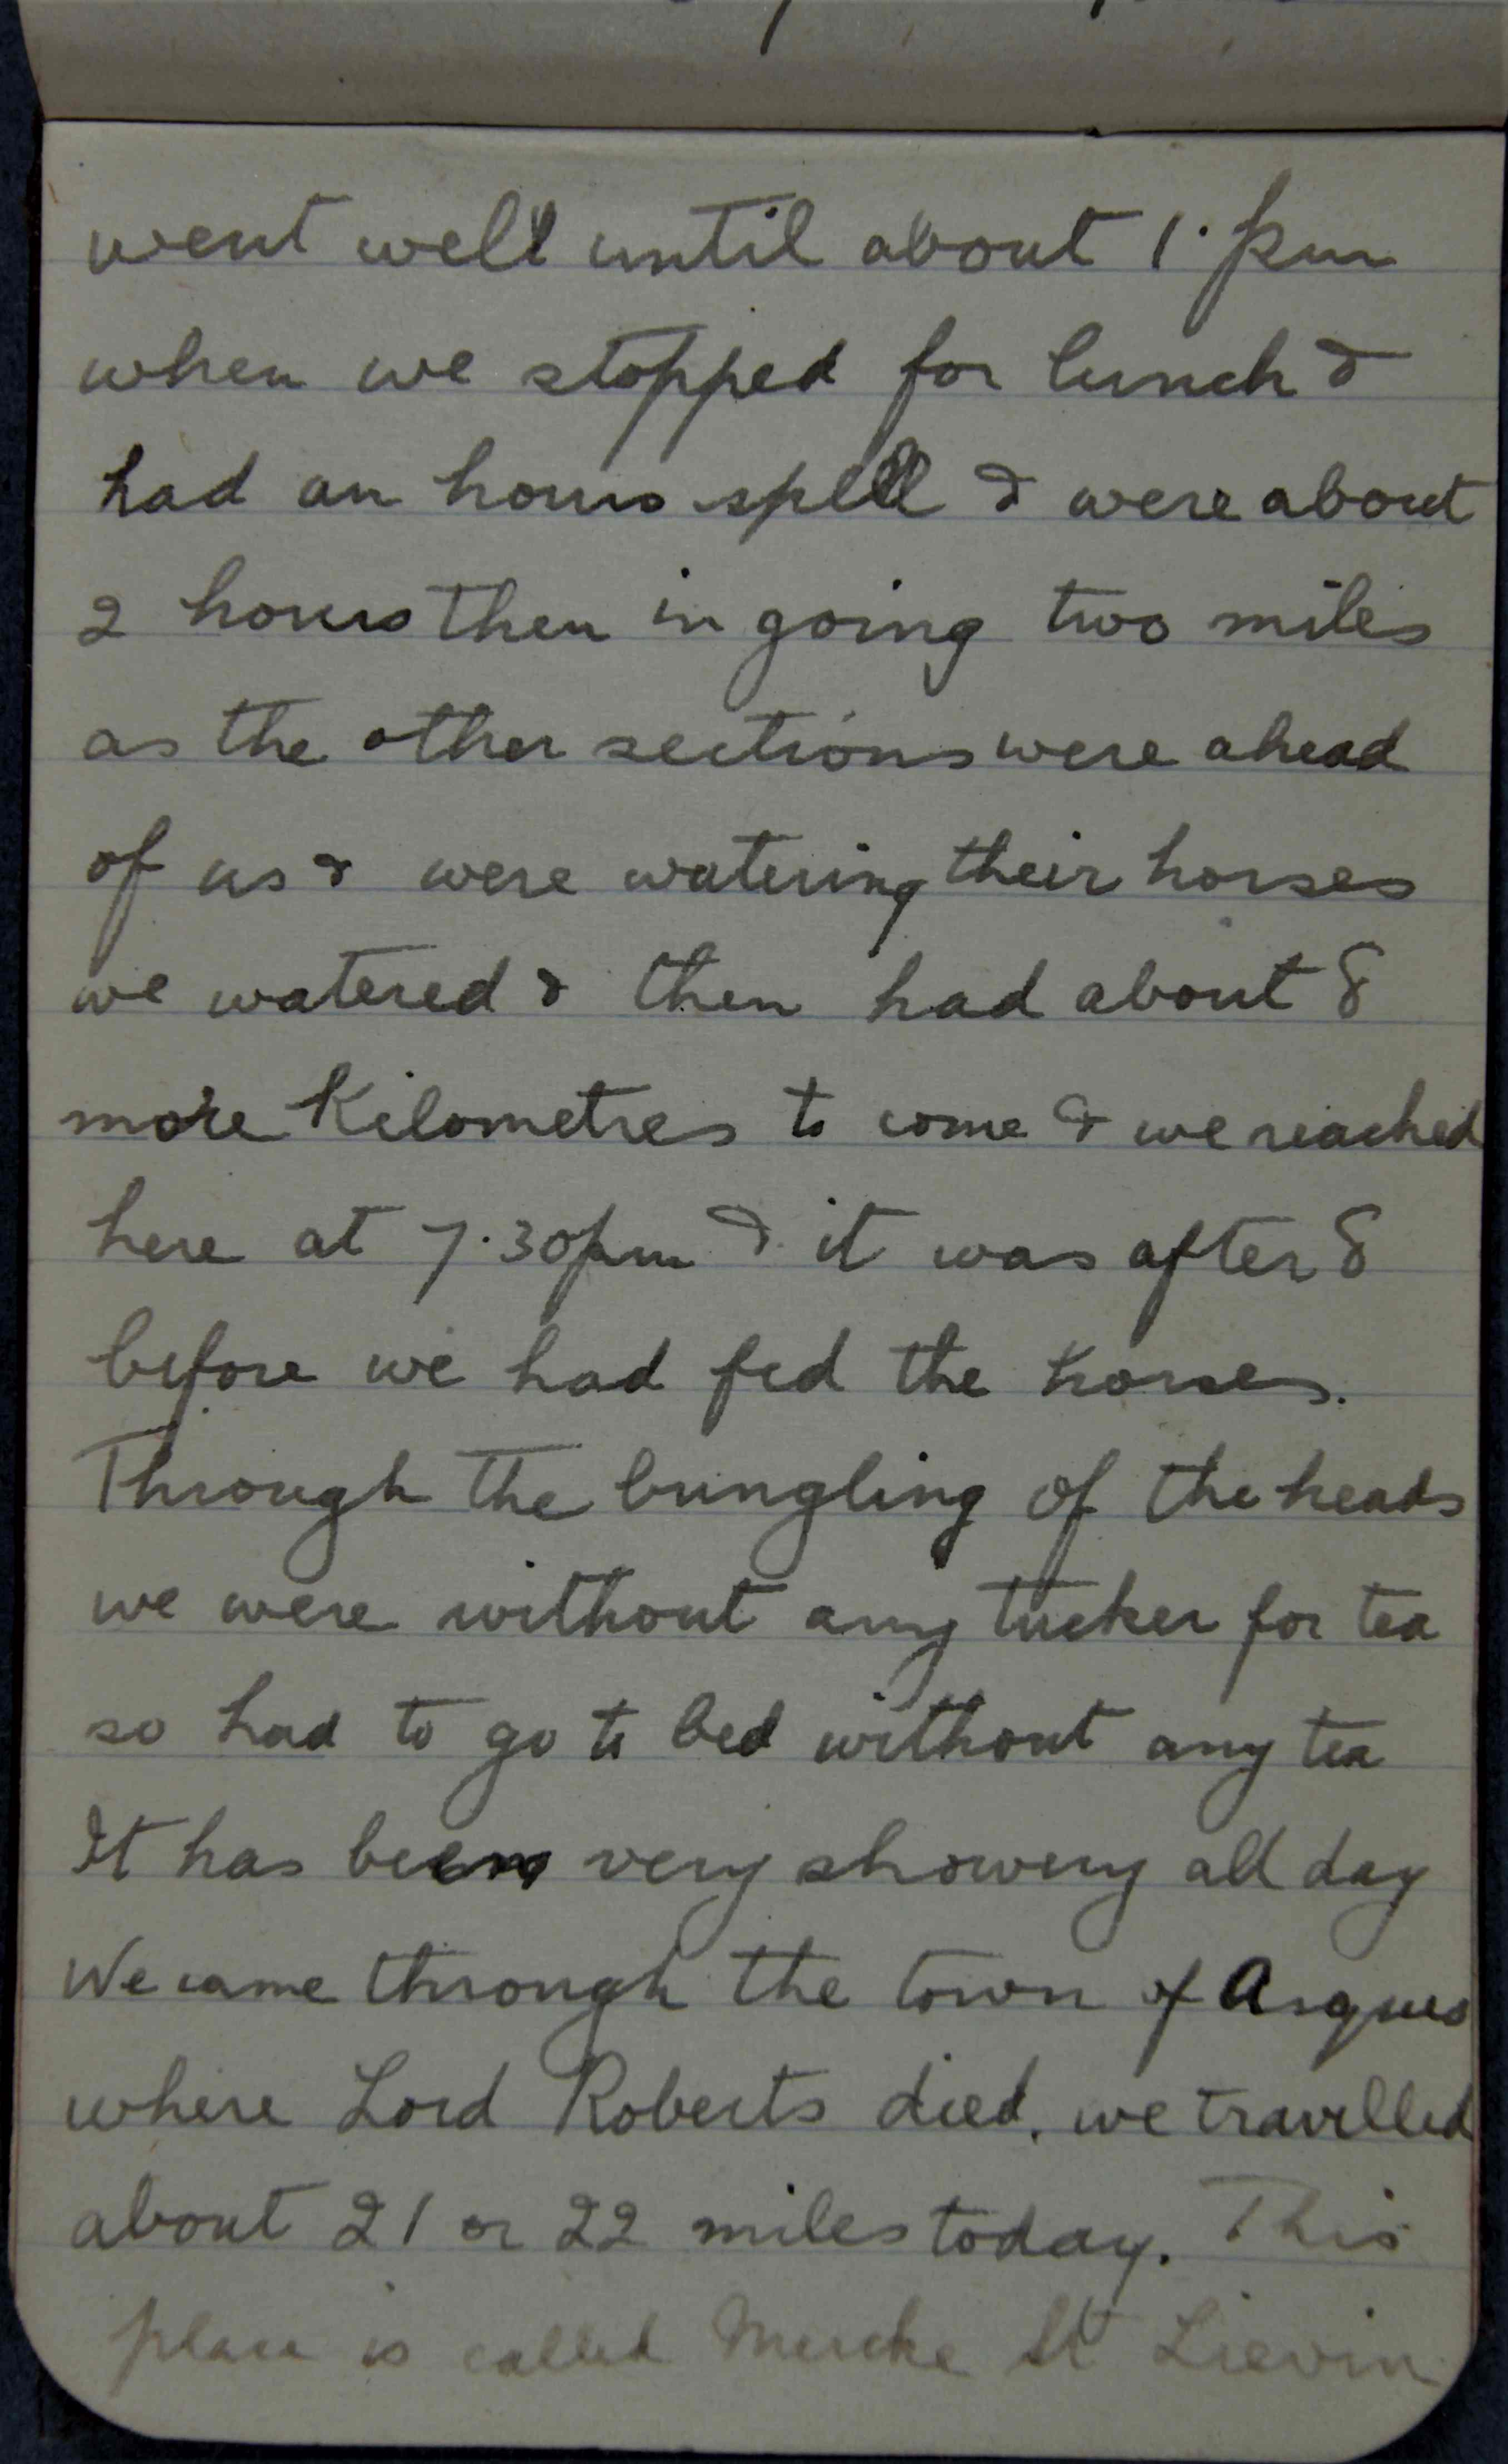 went well until about 1. pm
when we stopped for lunch &
had an hours spell & were about
2 hours then in going two miles
as the other sections were ahead
of us & were watering their horses
we watered & then had about 8
more Kilometres to come & we reached
here at 7.30pm & it was after 8
before we had fed the horses.
Through the bungling of the heads
we were without any tucker for tea
so had to go to bed without any tea
It has been very showery all day
We came through the town of Arques
where Lord Roberts died. we travelled
about 21 or 22 miles today. This
place is called Mercke St Lievin